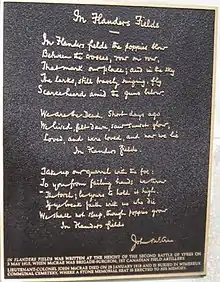 In Flanders Fields
In Flanders fields the poppies blow
Between the crosses, row on row,
That mark our place; and in the sky
The larks, still bravely singing, fly
Scarce heard amid the guns below.
We are the Dead. Short days ago
We lived, felt dawn, saw sunset glow,
Loved, and were loved, and now we lie
In Flanders fields
Take up our quarrel with the foe:
To you from failing hands we throw
The torch; be yours to hold it high.
If ye break faith with us who die
We shall not sleep, though poppies grow
In Flanders fields
John McCrae
IN FLANDERS FIELDS WAS WRITTEN AT THE HEIGHT OF THE SECOND BATTLE OF YPRES ON
3 MAY 1915, WHEN MCCRAE WAS BRIGADE-SURGEON, 1ST CANADIAN FIELD ARTILLERY.
LIEUTENANT-COLONEL JOHN MCCRAE DIED ON 28 JANUARY 1918 AND IS BURIED IN WIMEREUX
COMMUNAL CEMETERY, WHERE A STONE MEMORIAL SEAT IS ERECTED TO HIS MEMORY.